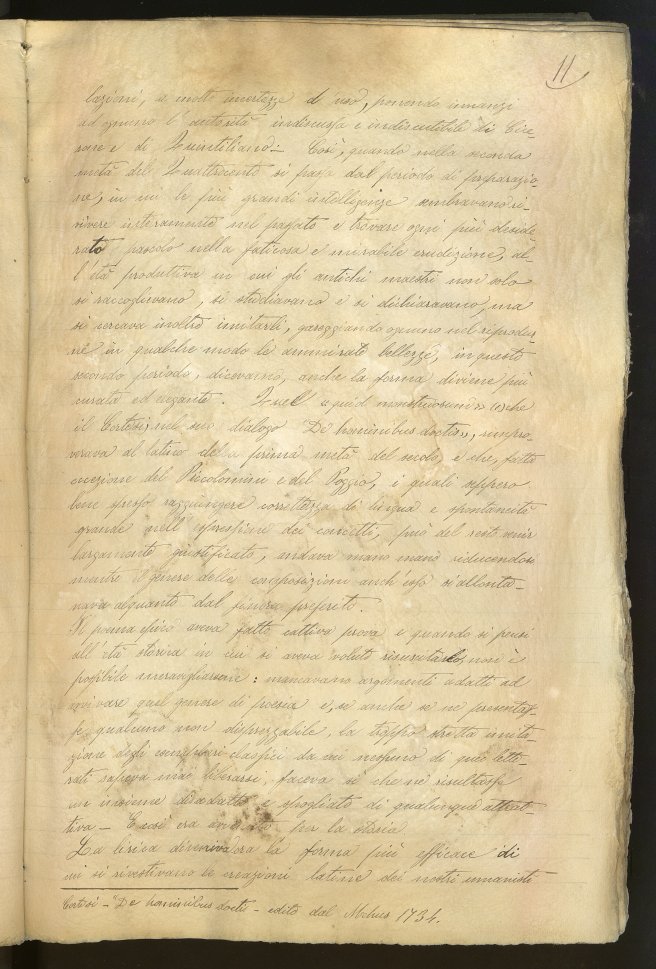 11
lazioni, a molte incertezze d'uso, ponendo innanzi
ad ognuno l'autorità indiscussa e indiscutibile di Cice
rone e di Quintiliano – Così, quando nella seconda
metà del Quattrocento si passa dal periodo di preparazio-
ne, in cui le più grandi intelligenze sembravano ri-
vivere interamente nel passato e trovare ogni più deside
rato pascolo nella faticosa e mirabile erudizione, al-
l'età produttiva in cui gli antichi maestri non solo
si raccoglievano, si studiavano e si dichiaravano, ma
si cercava inoltre imitarli, gareggiando ognuno nel riprodur-
ne in qualche modo le ammirate bellezze, in questo
secondo periodo, dicevamo, anche la forma diviene più
curata ed elegante. Quell' «quid monstruosum» (1) che
il Cortesi, nel suo dialogo "De hominibus doctis", rimpro
verava al latino della prima metà del secolo, e che, fatta
eccezione del Piccolomini e del Poggio, i quali seppero
bene spesso raggiungere correttezza di lingua e spontaneità
grande nell'espressione dei concetti, può del resto venir
largamente giustificato, andava mano mano riducendosi
mentre il genere delle composizioni anch'esso s'allonta-
nava alquanto dal finora preferito.
Il poema epico aveva fatto cattiva prova e quando si pensi
all'età storica in cui si aveva voluto risuscitarlo, non è
possibile meravigliarsene: mancavano argomenti adatti ad
avvivare quel genere di poesia e, se anche se ne presentas-
se qualcuno non disprezzabile, la troppo stretta imita
zione degli esemplari classici da cui nessuno di quei lette-
rati sapeva mai liberarsi faceva sì che ne risultasse
un insieme disadatto e spogliato di qualunque attrat-
tiva – Così era avvenuto per la storia.
La lirica diveniva ora la forma più efficace di
cui si rivestivano le creazioni latine dei nostri umanisti
Cortesi – "De hominibus doctis – edito dal Mehus 1734.